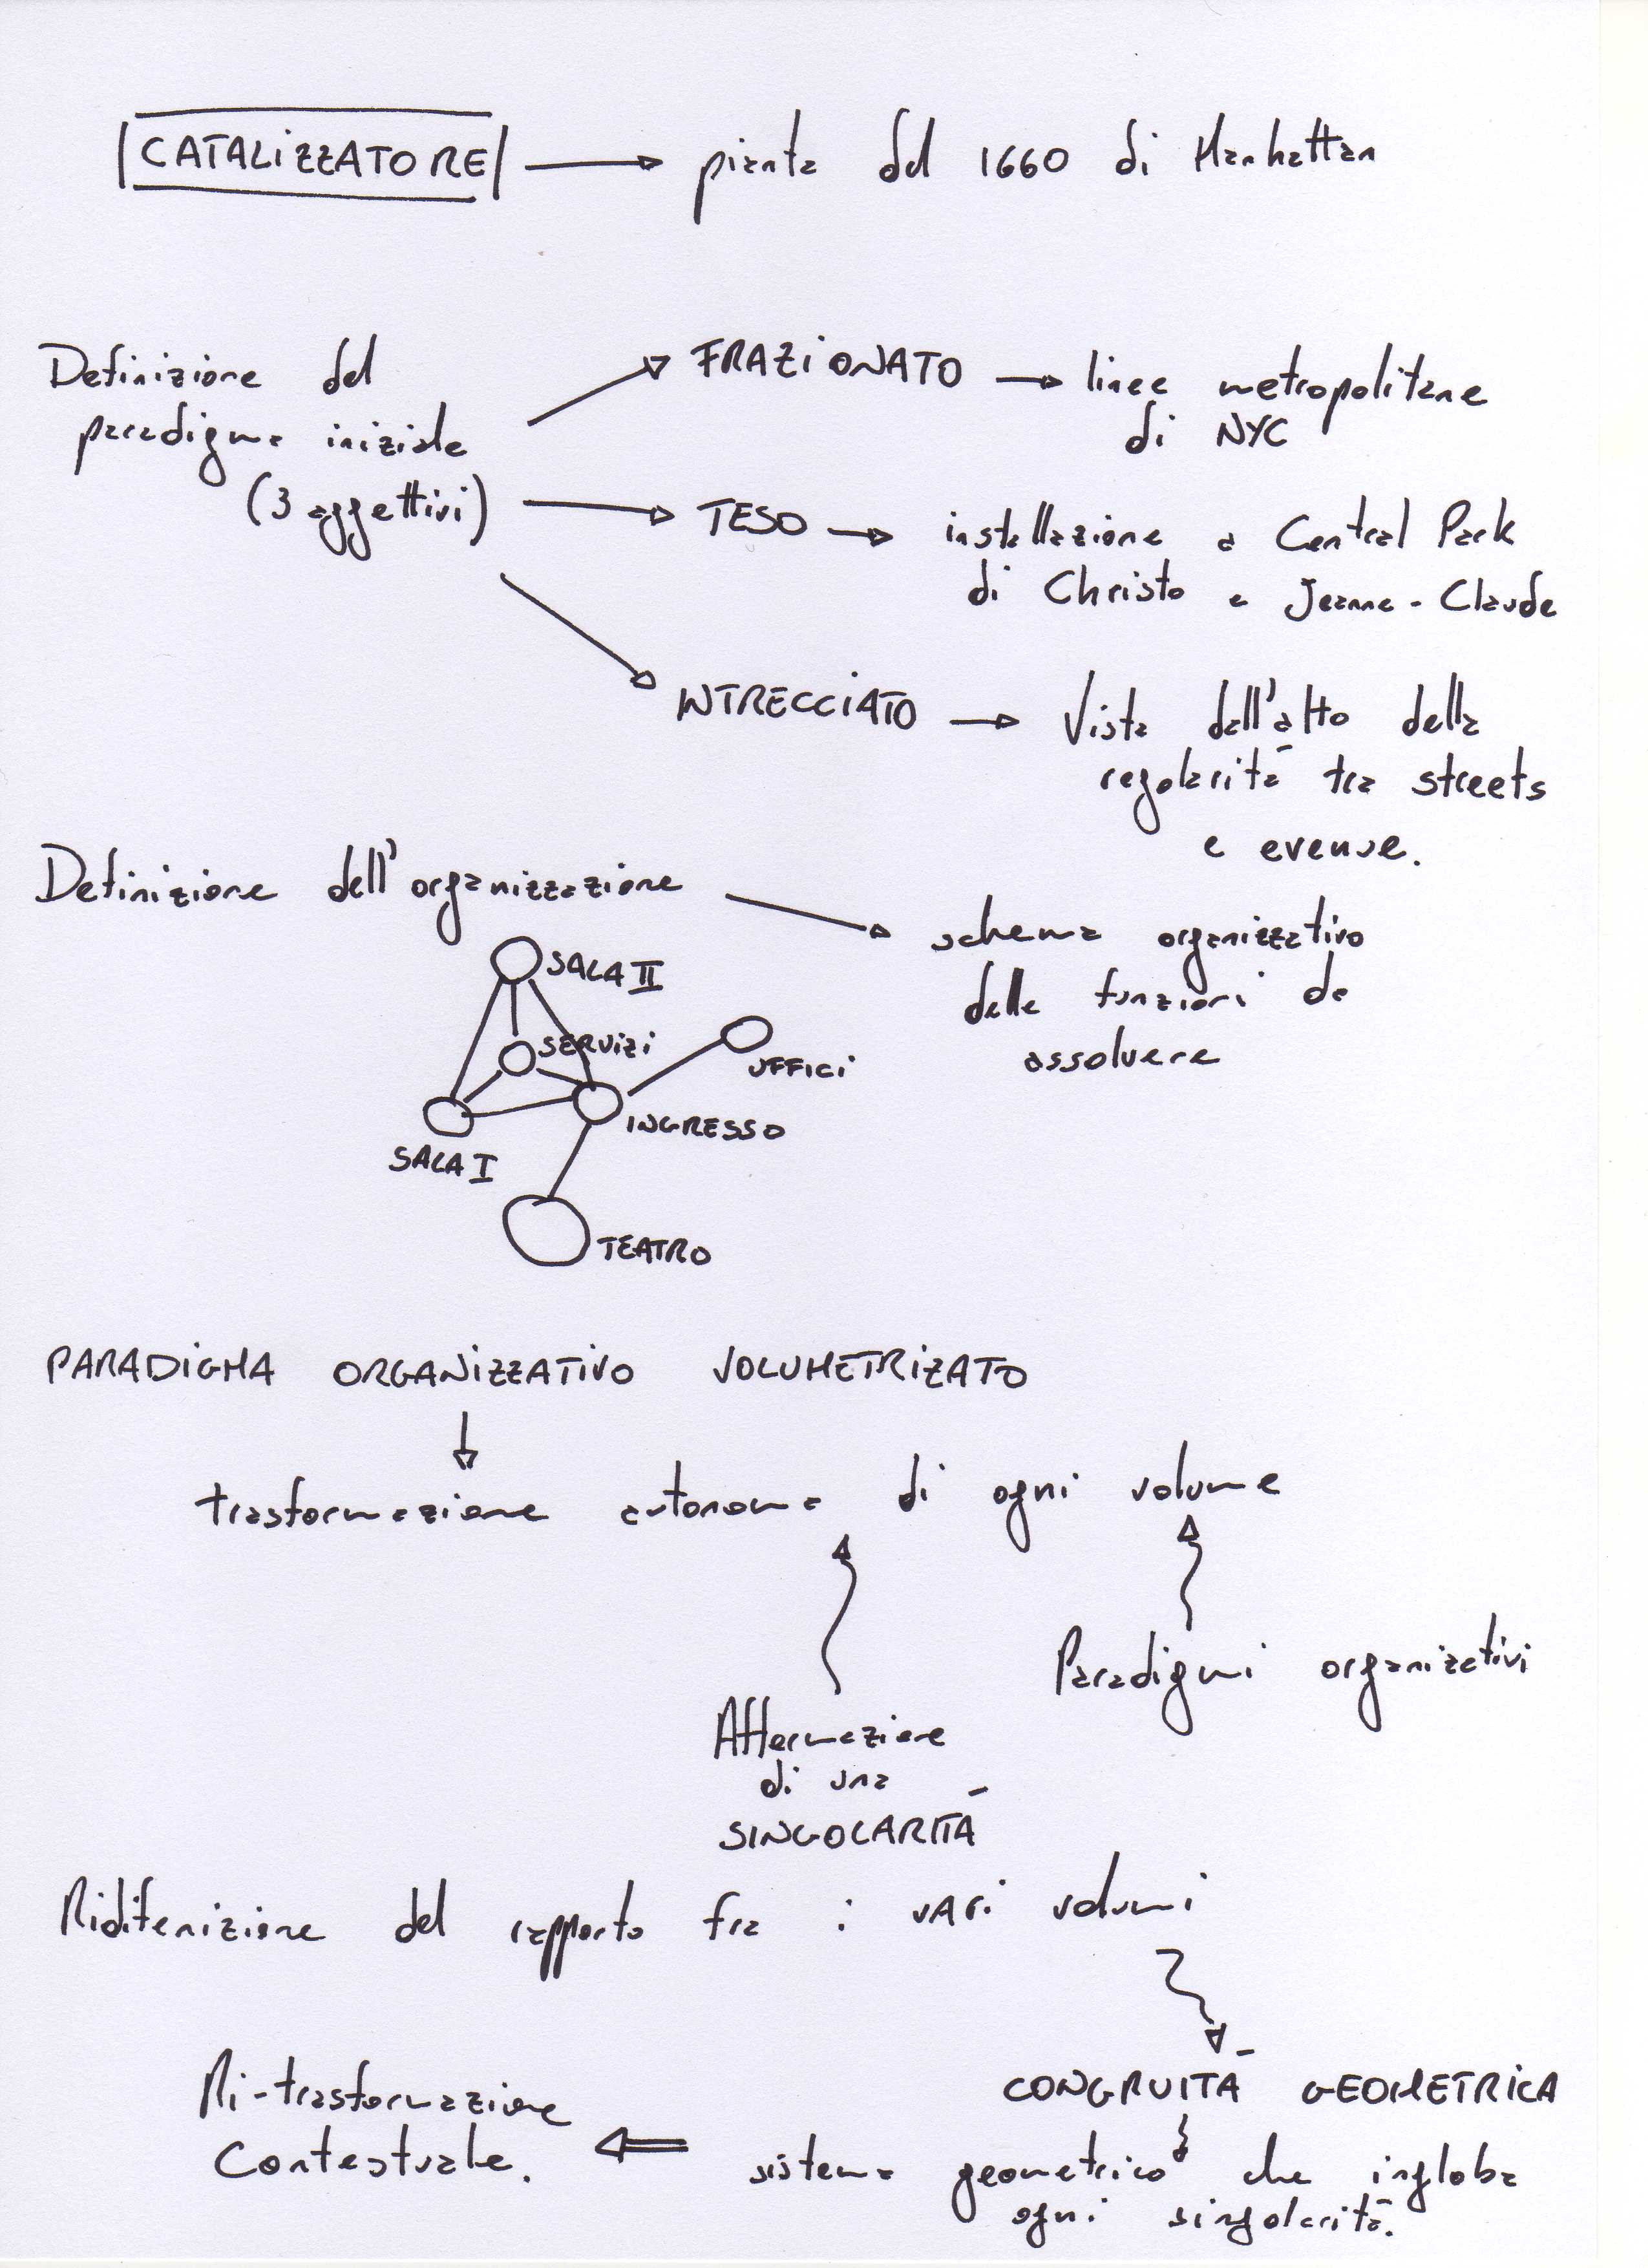 CATALIZZATORE pianta del 1660 di Manhattan
FRAZIONATO
Definizione del
linee metropolitane
paradigma iniziale
di NYC
(3 aggettivi)
TESO
installazione a Central Park
di Christo e Jeanne-Claude
INTRECCIATO
Vista dall'alto della
regolarità tra streets
e evenue.
Definizione dell'organizzazione
schema organizzativo
SALA II
delle funzioni da
SERVIZI
UFFICI
assolvere
INGRESSO
SALA I
TEATRO
PARADIGMA ORGANIZZATIVO VOLUMETRIZATO
trasformazione autonoma di ogni volume
Paradigmi organizativi
Affermazione
di una
SINGOLARITÀ
Ridifenizione del rapporto fra i vari volumi
Ri-trasformazione
CONGRUITÀ GEOMETRICA
Contestuale.
sistema geometrico che ingloba
ogni singolarità.